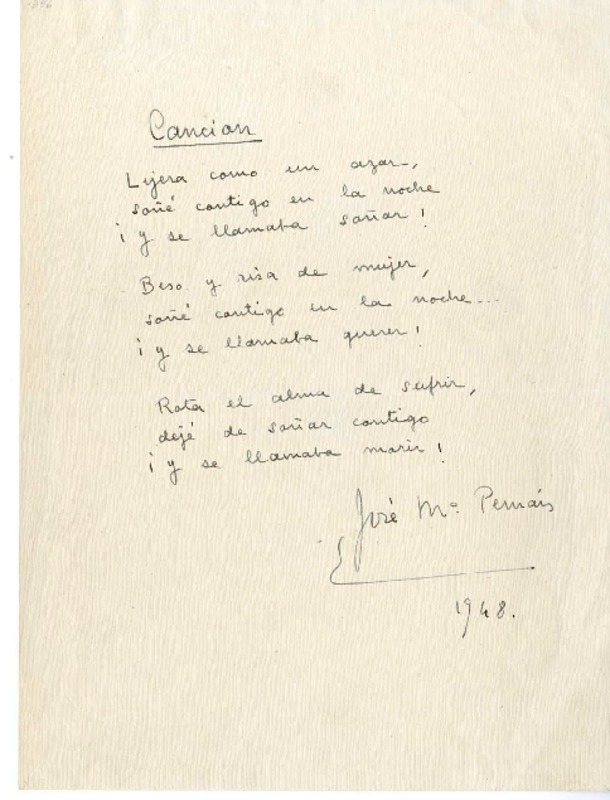 Cancion
Lijera como un azar,
soñé contigo en la noche
¡y se llamaba soñar!
Beso y risa de mujer,
soñé contigo en la noche...
¡y se llamaba querer!
Rota el alma de sufrir,
dejé de soñar contigo
¡y se llamaba morir!
José Mª Pemán
1948.